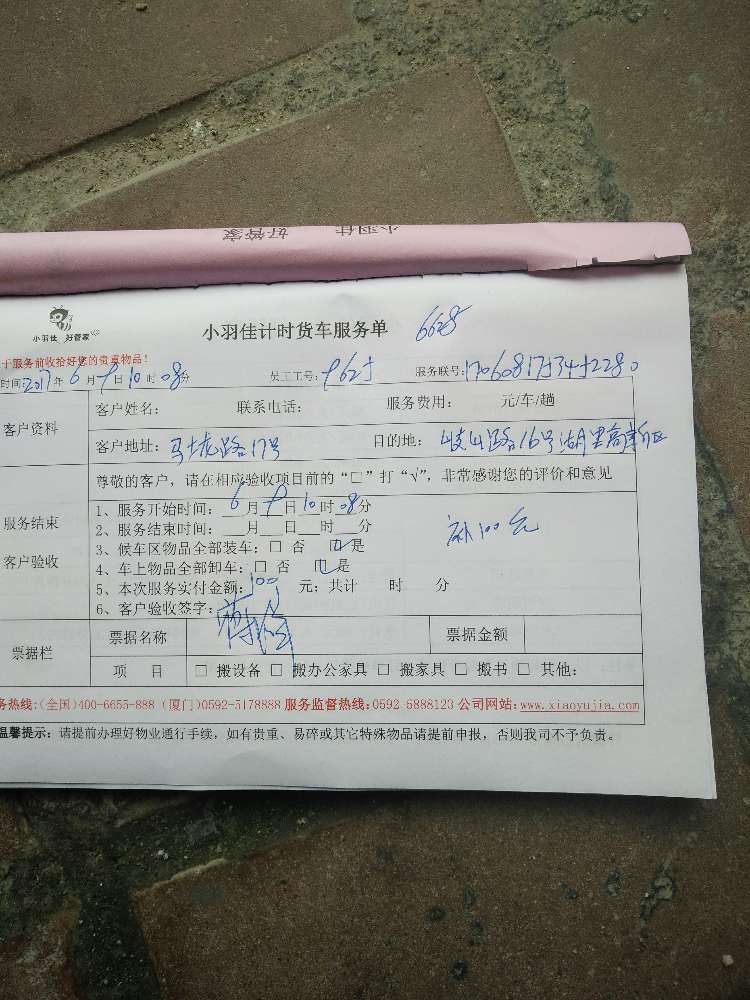 小羽佳 好管家
小羽佳 好管家
小羽佳计时货车服务单 6628
于服务前收拾好您的贵重物品!
时间:2017年6月9日10时08分 员工工号: 服务联号:
客户资料
客户姓名: 联系电话: 服务费用: 元/车/趟
客户地址: 马垅路17号 目的地: 岐山路16号湖里高新区
尊敬的客户,请在相应验收项目前的“□”打“√”,非常感谢您的评价和意见
服务结束
客户验收
1、服务开始时间: 6月9日10时08分
2、服务结束时间: 月 日 时 分
3、候车区物品全部装车: □ 否 ☑是
4、车上物品全部卸车: □ 否 ☑是
5、本次服务实付金额: 100 元; 共计 时 分
6、客户验收签字:
100元
票据栏
票据名称 票据金额
项 目 □ 搬设备 □ 搬办公家具 □ 搬家具 □ 搬书 □ 其他:
务热线:(全国)400-6655-888 (厦门)0592-5178888 服务监督热线:0592 5888123 公司网站:www.xiaoyujia.com
温馨提示: 请提前办理好物业通行手续,如有贵重、易碎或其它特殊物品请提前申报,否则我司不予负责。